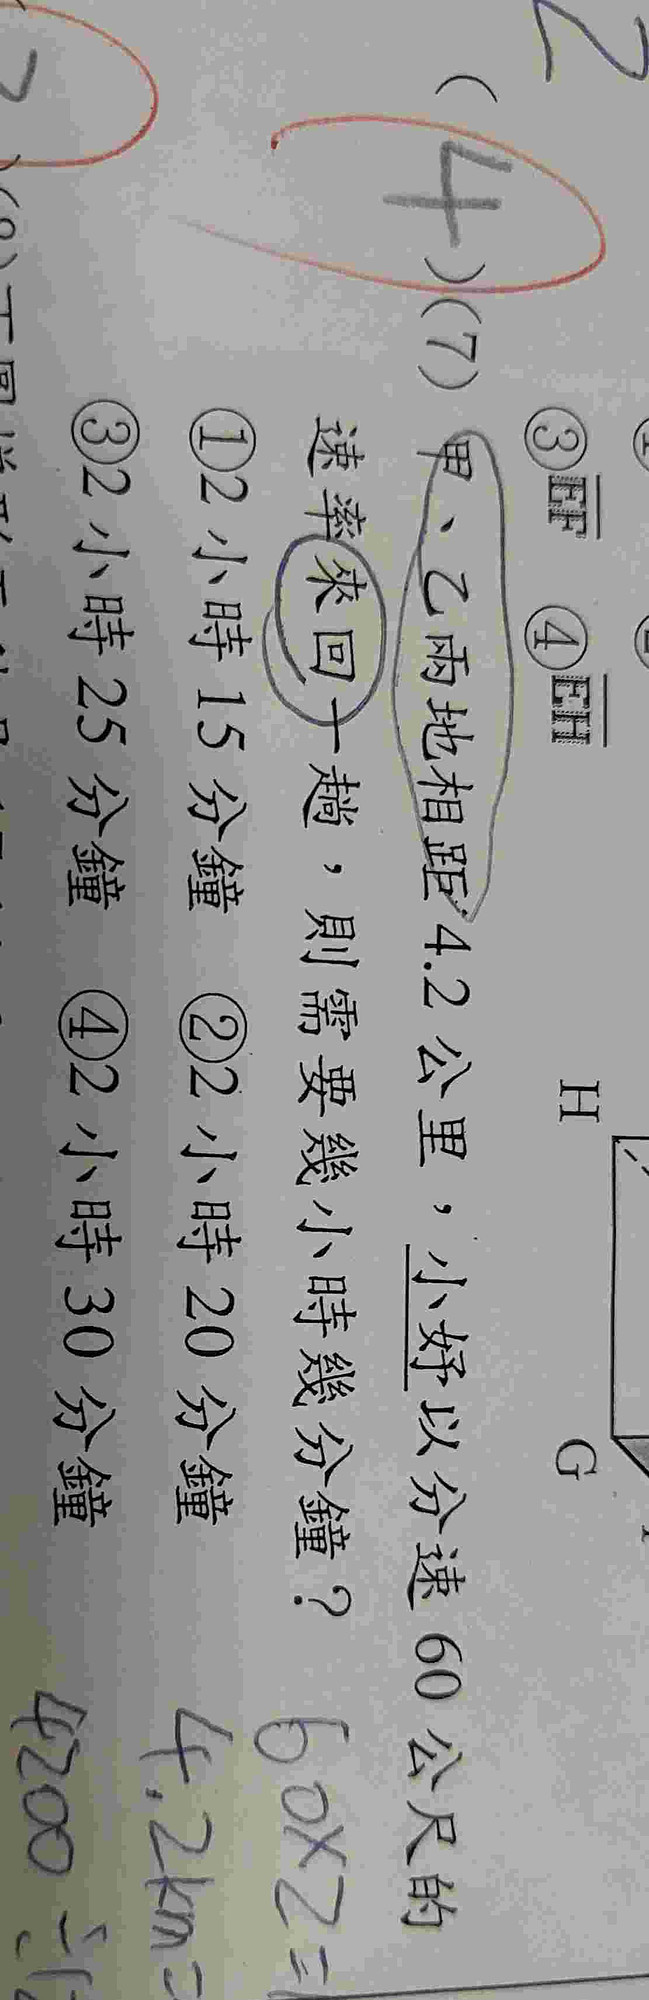 2
③EF ④EH
H
G
( 4 )(7) 甲、乙兩地相距 4.2 公里，小好以分速 60 公尺的
速率來回一趟，則需要幾小時幾分鐘？ 60×2=1
①2 小時 15 分鐘 ②2 小時 20 分鐘 4.2km=
③2 小時 25 分鐘 ④2 小時 30 分鐘 4200÷12